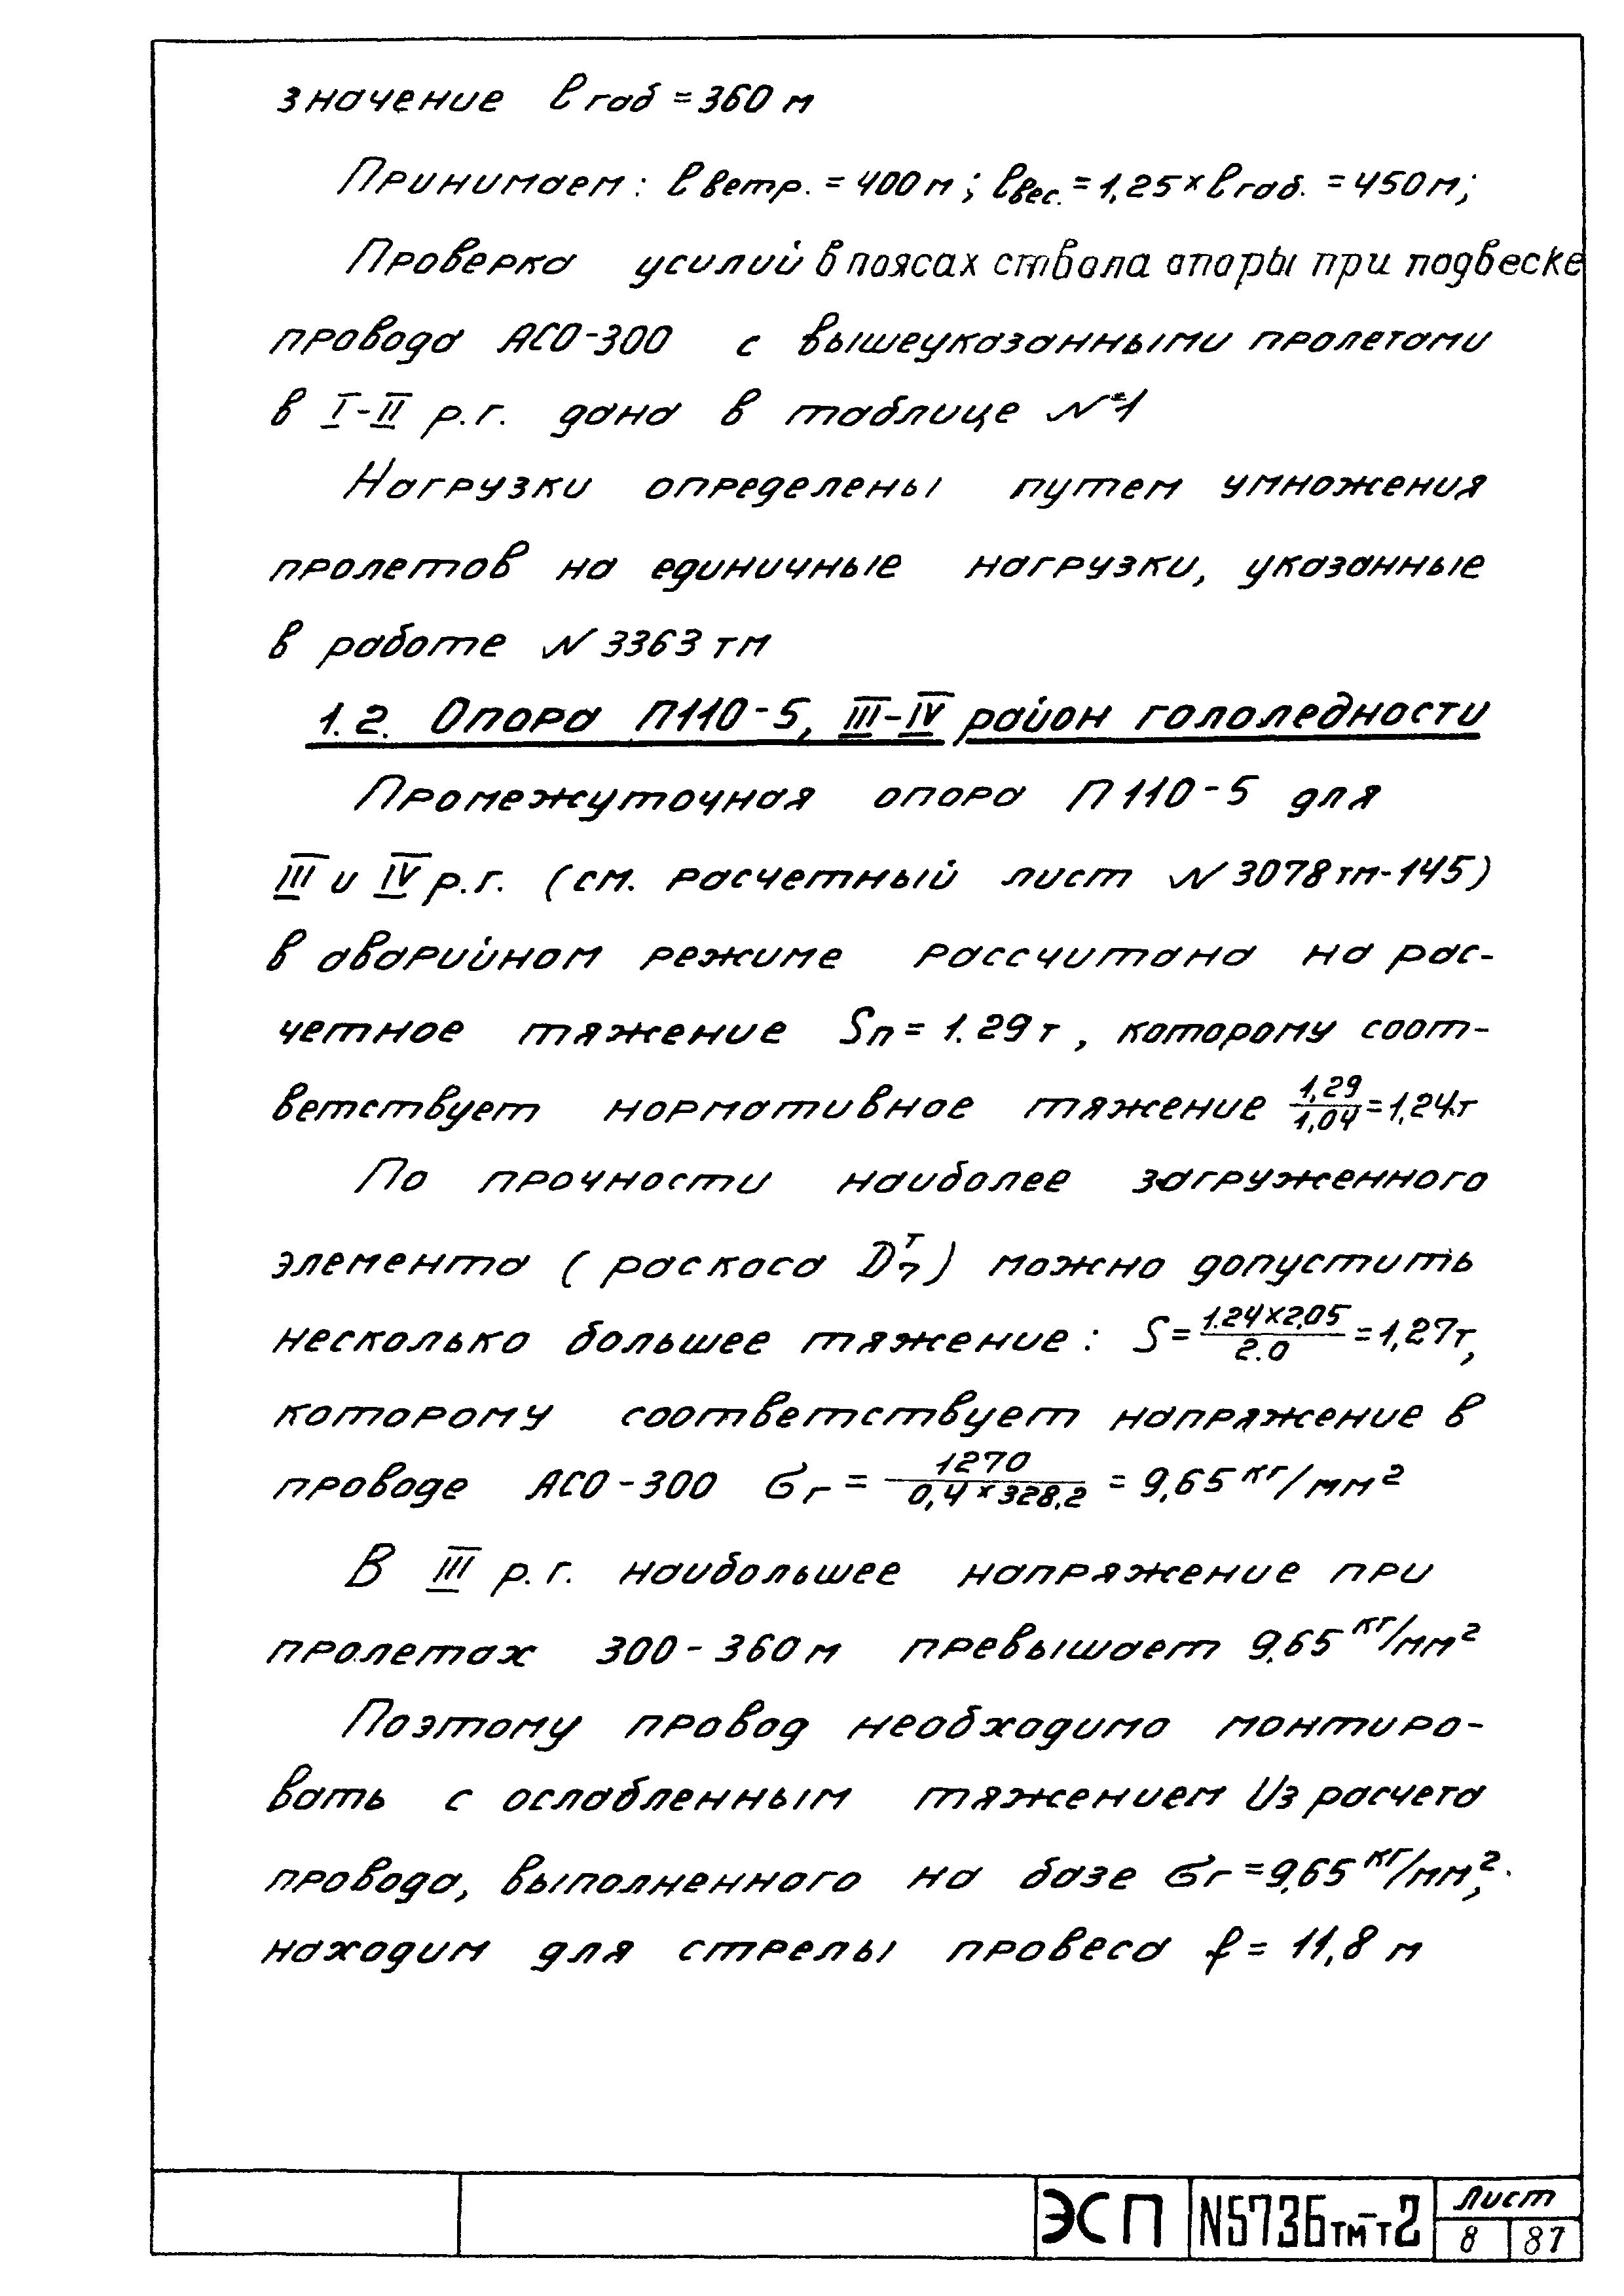 значение ℓгаб = 360 м
Принимаем: ℓветр. = 400 м; ℓвес. = 1,25 × ℓгаб. = 450 м;
Проверка усилий в поясах ствола опоры при подвеске
провода АСО-300 с вышеуказанными пролетами
в I-II р.г. дана в таблице №1
Нагрузки определены путем умножения
пролетов на единичные нагрузки, указанные
в работе N 3363 тм
1.2. Опора П110-5, III-IV район гололедности
Промежуточная опора П110-5 для
III и IV р.г. (см. расчетный лист N 3078тм-145)
в аварийном режиме рассчитана на рас-
четное тяжение Sп = 1.29 т, которому соот-
ветствует нормативное тяжение 1,29/1,04 = 1,24т
По прочности наиболее загруженного
элемента (раскоса D₇ᵀ) можно допустить
несколько большее тяжение: S = 1.24×2.05/2.0 = 1,27т,
которому соответствует напряжение в
проводе АСО-300 σг = 1270/0,4×328,2 = 9,65 кг/мм²
В III р.г. наибольшее напряжение при
пролетах 300-360 м превышает 9.65 кг/мм²
Поэтому провод необходимо монтиро-
вать с ослабленным тяжением Из расчета
провода, выполненного на базе σг = 9.65 кг/мм²,
находим для стрелы провеса f = 11,8 м
ЭСП N5736тм-т2 Лист
8 87